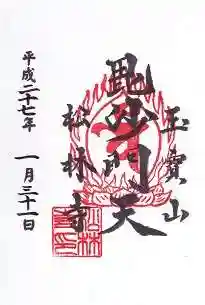 玉寶山
毘沙門天
松林寺
平成二十七年 一月三十一日